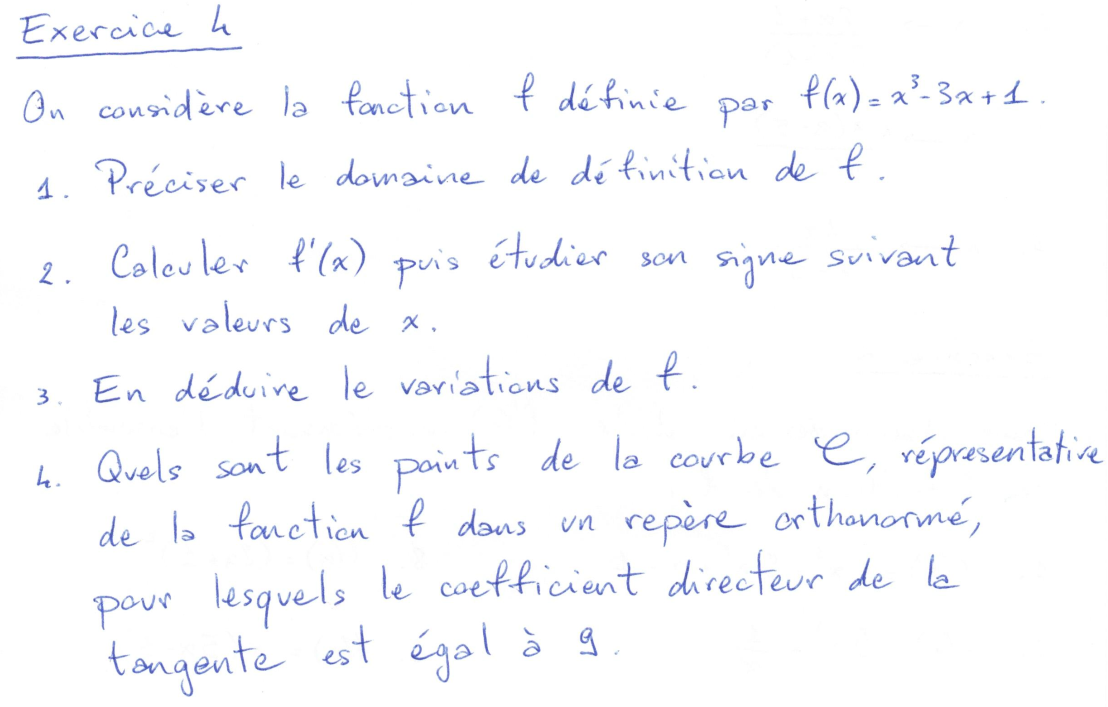 Exercice 4
On considère la fonction f définie par f(x) = x³-3x+1.
1. Préciser le domaine de définition de f.
2. Calculer f'(x) puis étudier son signe suivant
les valeurs de x.
3. En déduire le variations de f.
4. Quels sont les points de la courbe C, répresentative
de la fonction f dans un repère orthonormé,
pour lesquels le coefficient directeur de la
tangente est égal à 9.